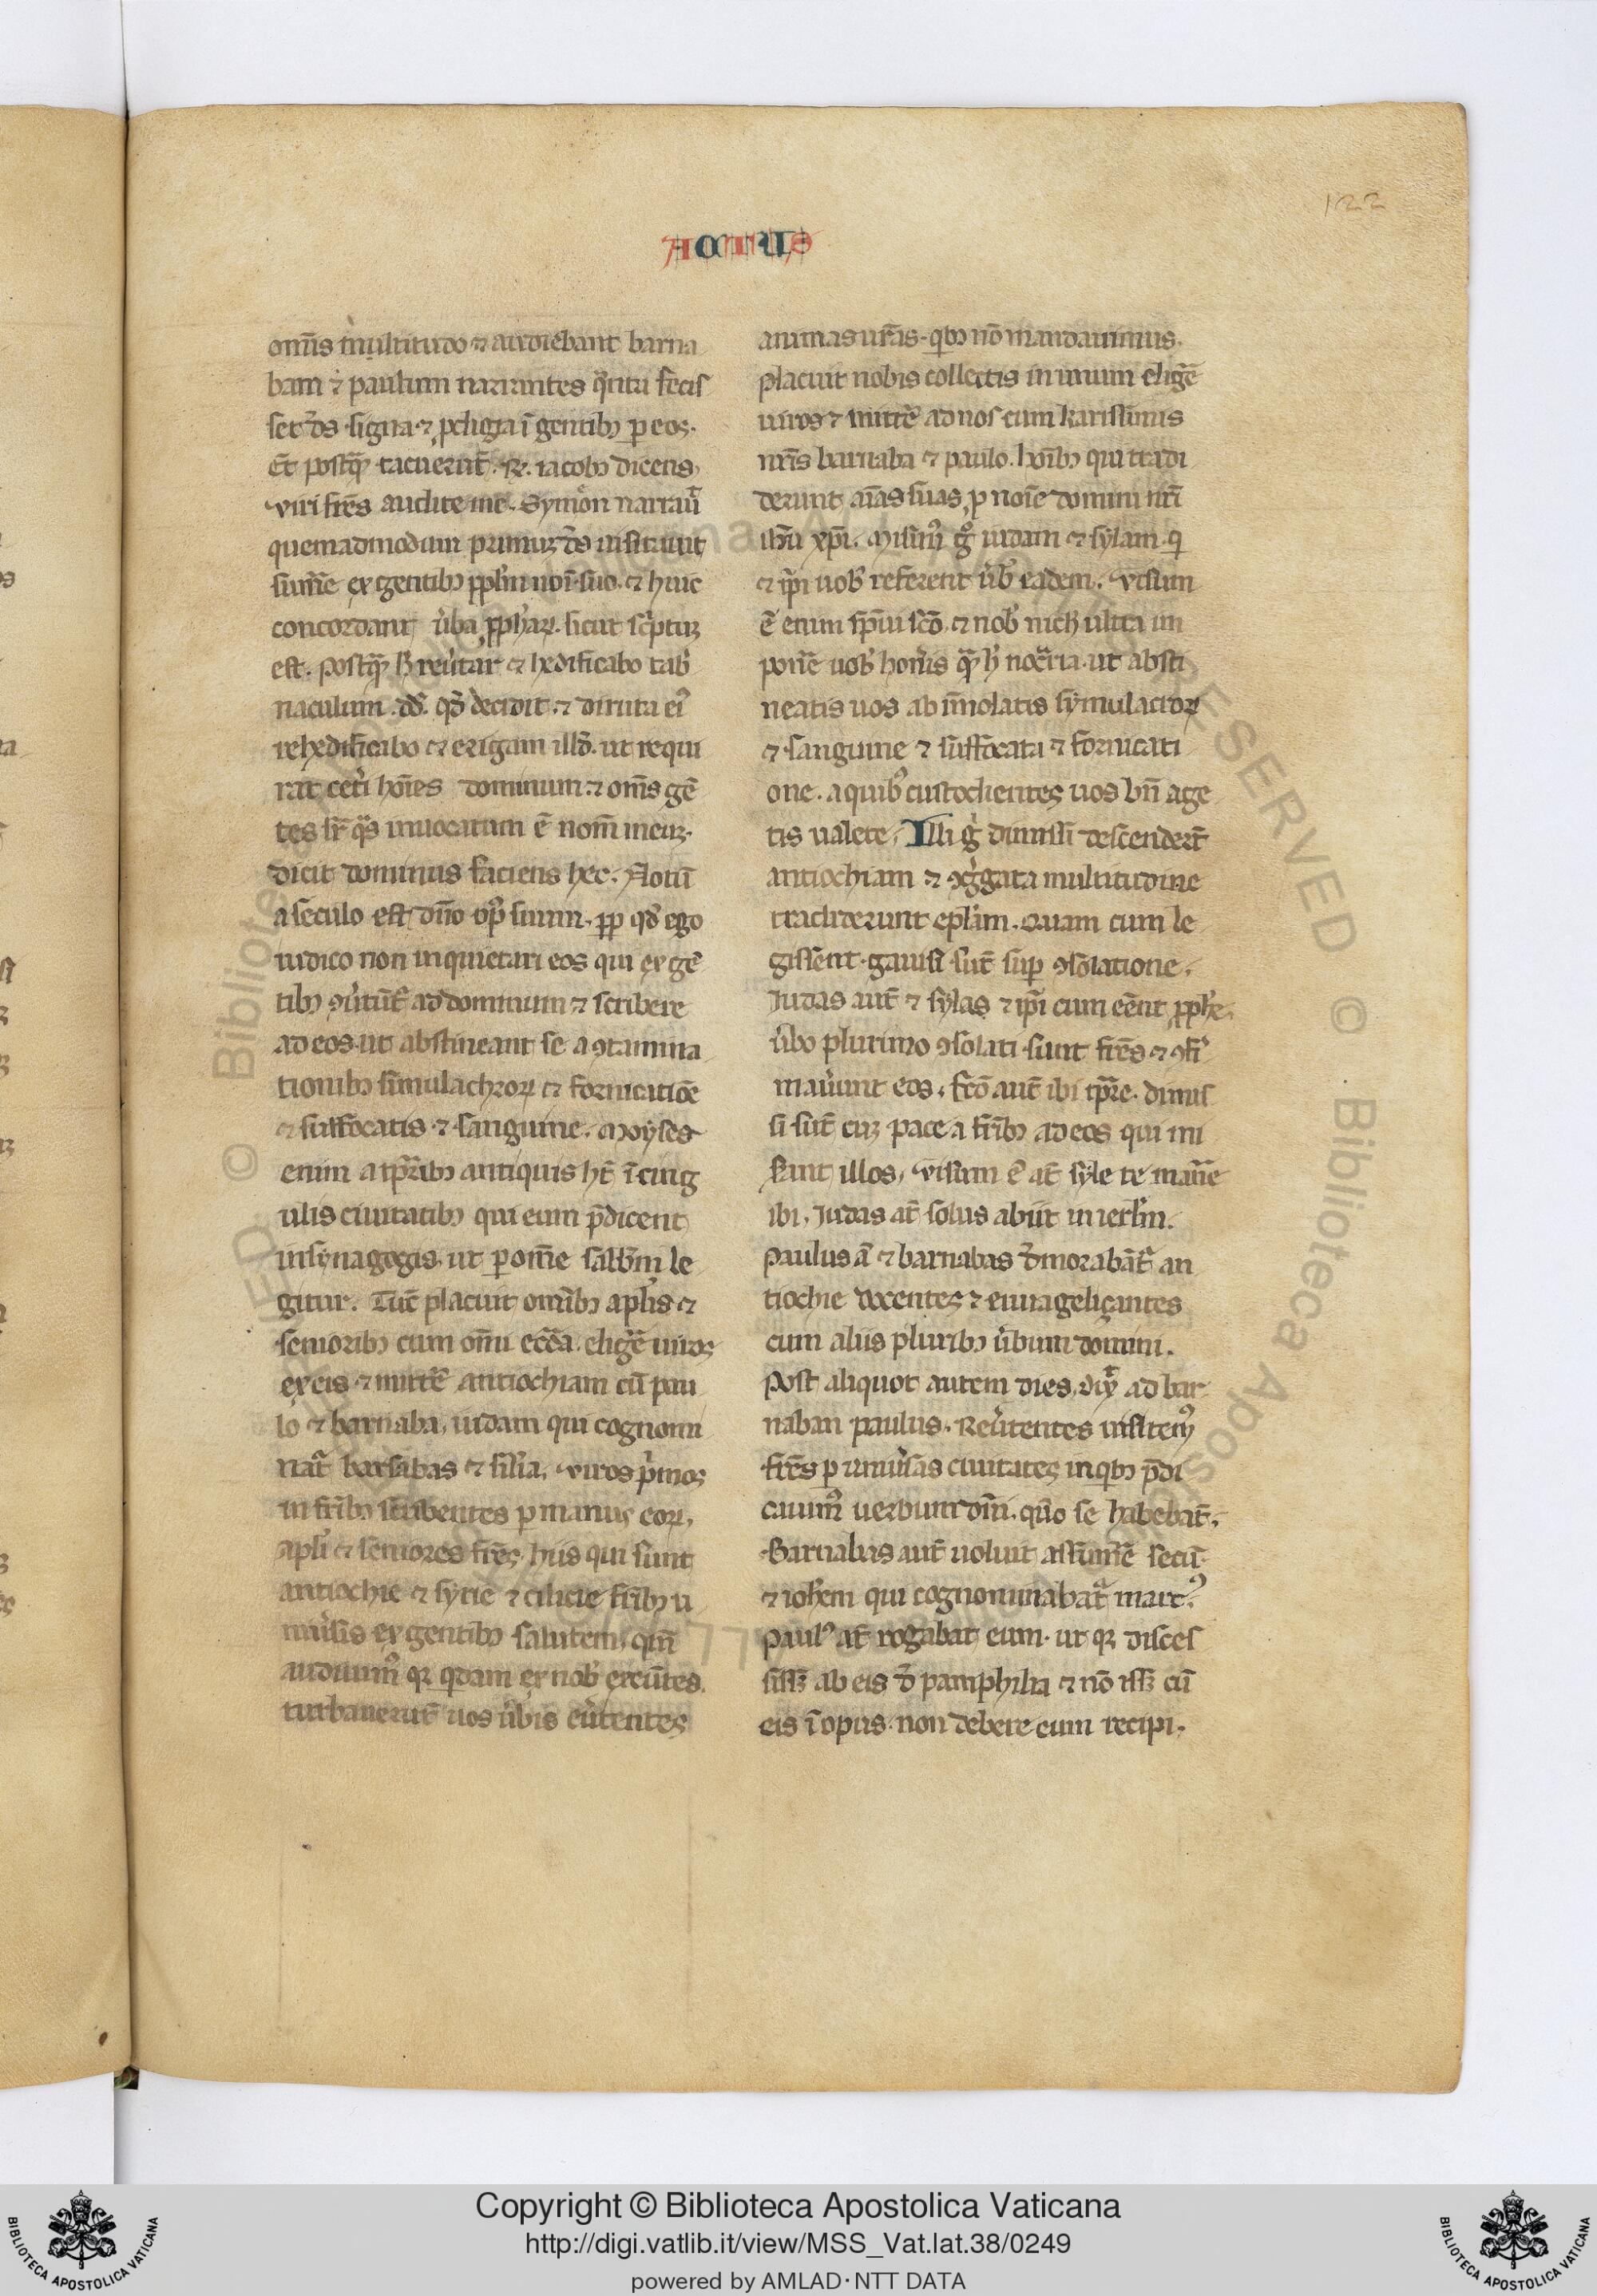 122
ACTUS
om̄s multitudo ⁊ audiebant barna
bam ⁊ paulum narrantes q̃nta fecis
set d̄s signa ⁊ ꝓdigia ī gentibꝫ ꝑ eos.
Et postꝗ̃ tacuerūt. R̄. iacobꝫ dicens,
viri fr̄es audite me. Symon narrau̅
quemadmodum primuꝫ d̄s uisitauit
sum̄e ex gentibꝫ ppl̄m noī suo. ⁊ huic
concordant ũba ꝓph̄aꝝ. sicut sc̃ptuꝫ
est. Postꝗ̃ h̄ reũtar ⁊ hedificabo tab̃
naculum dd̄. qd̄ decidit. ⁊ diruta eiꝰ
rehedificabo ⁊ erigam illd̄. ut requi
rat cet̃i hoīes dominum ⁊ om̄s gē
tes sr̄ q̃s inuocatum ē nom̄ meuꝫ.
dicit dominus faciens hec. Notū
a seculo est dn̄o opꝰ suum. ꝓp qd̄ ego
iudico non inquietari eos qui ex gē
tibꝫ ꝯũtūt̃ ad dominum ⁊ scribere
ad eos ut abstineant se a ꝯtamina
tionibꝫ simulachroꝝ ⁊ fornicatiōe
⁊ suffocatis ⁊ sanguine. Moyses
enim a tp̄ribꝫ antiquis ht̄ ī cing
ulis ciuitatibꝫ qui eum p̄dicent
in synagogis. ut ꝑ om̄e sabb̄m le
gitur. Tūc placuit omībꝫ apl̄is ⁊
senioribꝫ cum om̄i ecc̄a. elig̃e uiros
ex eis ⁊ mitt̃e antiochiam cū pau
lo ⁊ barnaba, iudam qui cognomi
nat̃ barsabas ⁊ sil̄ia, viros p̃mos
in fr̄ibꝫ scribentes ꝑ manus eoꝝ,
apl̄i ⁊ seniores fr̄es. hiis qui sunt
antiochie ⁊ syrie ⁊ cilicie fr̄ibꝫ u
niũsis ex gentibꝫ salutem. qm̄
audiuimꝰ qꝫ q̇dam ex nob̃ exeūtes.
turbauerūt uos ũbis eũtentes
animas ur̄as. q̇bꝫ nō mandauimus.
placuit nobis collectis in unum elig̃e
uiros ⁊ mitt̃e ad uos cum karissimis
nr̄is barnaba ⁊ paulo. hoībꝫ qui tradi
derunt aīas suas ꝓ noīe domini nr̄i
ih̄u xp̄i. Misimꝰ gͦ iudam ⁊ sylam. q̇
⁊ ip̄i uob̃ referent ũb̃ eadem. Visum
ē enim sp̄iu sc̄o ⁊ nob̃ nich̄ ultra im
pon̄e uob̃ hon̄is ꝗ̃ h̄ nec̄ria. ut absti
neatis uos ab īmolatis symulacroꝝ
⁊ sanguine ⁊ suffocata ⁊ fornicati
one. a quibꝰ custodientes uos bn̄ age
tis ualete. Illi g̃ dimissi descenderūt
antiochiam ⁊ ꝯg̃gata multitudine
tradiderunt epl̄am. Quam cum le
gissent. gauisi sūt suꝑ ꝯsolatione.
Judas aut̄ ⁊ sylas ⁊ ip̄i cum eēnt ꝓphe.
ũbo plurimo ꝯsolati sunt fr̄es ⁊ ꝯfi̾
maũunt eos. fc̄o aut̄ ibi tp̄re. dimis
si sūt cuꝫ pace a fr̄ibꝫ ad eos qui mi
s̃unt illos, visum ē at̄ syle re man̄e
ibi, Judas at̄ solus abiit in ierl̄m.
Paulus ā ⁊ barnabas d̄morabāt̃ an
tiochie docentes ⁊ euuāgeliçantes
cum aliis pluribꝫ ũbum domini.
Post aliquot autem dies, dix̃ ad bar
naban paulus. Reũtentes uisitemꝰ
fr̄es ꝑ uniũsas ciuitates in q̇bꝫ p̄di
cauimꝰ uerbum dn̄i. quō se habebāt.
Barnabas aut̄ uoluit assūm̄e secū.
⁊ ioh̄em qui cognominabat̃ marcꝰ.
Paulꝰ at̄ rogabat eum. ut qꝫ disces
sissꝫ ab eis d̄ pamphilia ⁊ nō issꝫ cū
eis ī opus. non debere eum recipi.
Copyright © Biblioteca Apostolica Vaticana
http://digi.vatlib.it/view/MSS_Vat.lat.38/0249
powered by AMLAD·NTT DATA
BIBLIOTECA APOSTOLICA VATICANA
BIBLIOTECA APOSTOLICA VATICANA